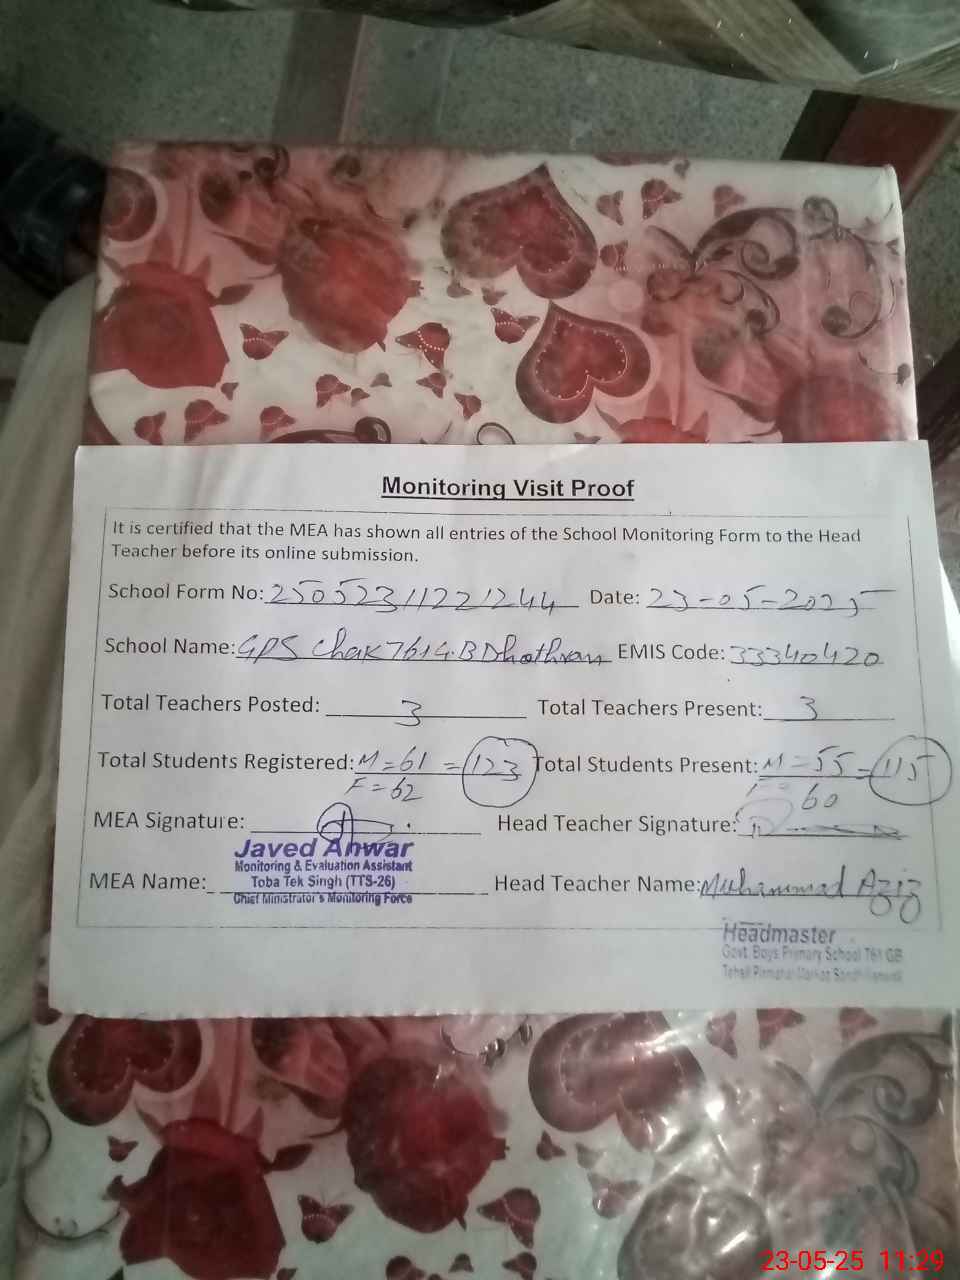 Monitoring Visit Proof
It is certified that the MEA has shown all entries of the School Monitoring Form to the Head
Teacher before its online submission.
School Form No: 25052311221244 Date: 23-05-2025
School Name: GPS Chak 761 G.B Dhothran EMIS Code: 33340420
Total Teachers Posted: 3 Total Teachers Present: 3
Total Students Registered: M=61 = 123 Total Students Present: M=55 = 115
F=62 F= 60
MEA Signature: Head Teacher Signature:
Javed Anwar
Monitoring & Evaluation Assistant
MEA Name: Toba Tek Singh (TTS-26) Head Teacher Name: Muhammad Aziz
Chief Minister's Monitoring Force
Headmaster
Govt. Boys Primary School 761 GB
Tehsil
23-05-25 11:29